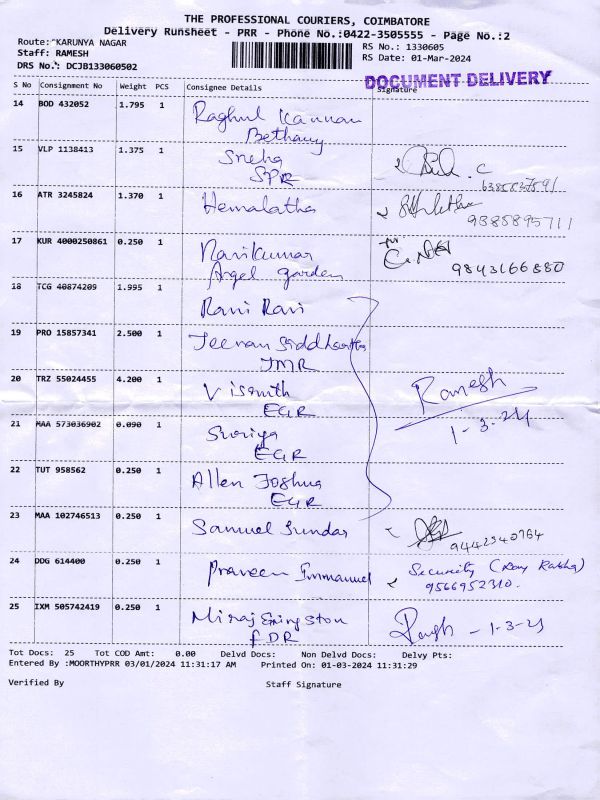 THE PROFESSIONAL COURIERS, COIMBATORE
Delivery Runsheet - PRR - Phone No.:0422-3505555 - Page No.:2
Route: KARUNYA NAGAR RS No.: 1330605
Staff: RAMESH RS Date: 01-Mar-2024
DRS No.: DCJB133060502
DOCUMENT DELIVERY
S No Consignment No Weight PCS Consignee Details Signature
14 BOD 432052 1.795 1 Raghul Kannan
Bethany
15 VLP 1138413 1.375 1 Sneha
SPR
16 ATR 3245824 1.370 1 Hemalatha 9385895711
17 KUR 4000250861 0.250 1 Ravikumar
Angel garden 9843166880
18 TCG 40874209 1.995 1 Ravi Ravi
19 PRO 15857341 2.500 1 Jeevan Siddhartha
JMR
20 TRZ 55024455 4.200 1 Vismith Ramesh
EGR 1-3-24
21 MAA 573036902 0.090 1 Suriya
EGR
22 TUT 958562 0.250 1 Allen Joshua
EGR
23 MAA 102746513 0.250 1 Samuel Sundar 9442340764
24 DDG 614400 0.250 1 Praveen Immanuel Security
9566952310.
25 IXM 505742419 0.250 1 - 1-3-24
FDR
Tot Docs: 25 Tot COD Amt: 0.00 Delvd Docs: Non Delvd Docs: Delvy Pts:
Entered By :MOORTHYPRR 03/01/2024 11:31:17 AM Printed On: 01-03-2024 11:31:29
Verified By Staff Signature